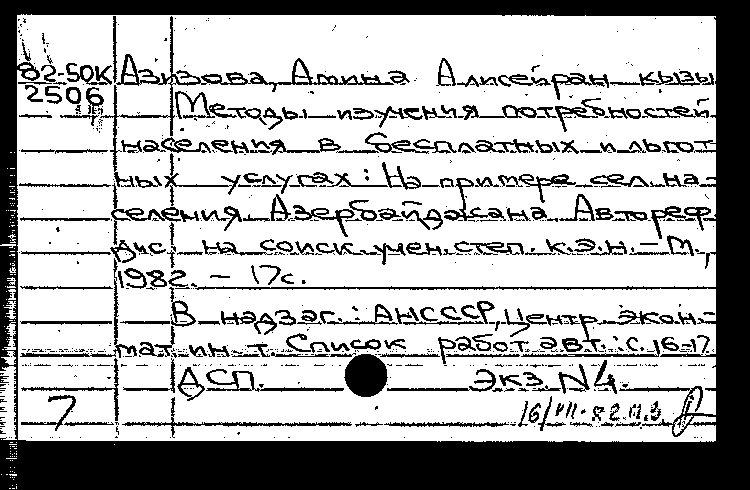 82-50К Азизова, Амина Алисейран кызы
2506 Методы изучения потребностей
населения в бесплатных и льгот-
ных услугах: На примере сел. на-
селения Азербайджана Автореф.
дис. на соиск. учен. степ. к.э.н. – М.,
1982. – 17с.
В надзаг.: АНСССР, Центр. экон.-
мат. ин-т. Список работ авт.: с. 16-17
ДСП. Экз. N4.
7 16/VII-82 п.з.